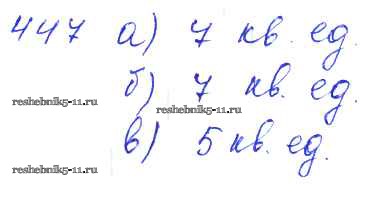 447 а) 7 кв. ед.
б) 7 кв. ед.
reshebnik5-11.ru reshebnik5-11.ru
в) 5 кв. ед.
reshebnik5-11.ru reshebnik5-11.ru